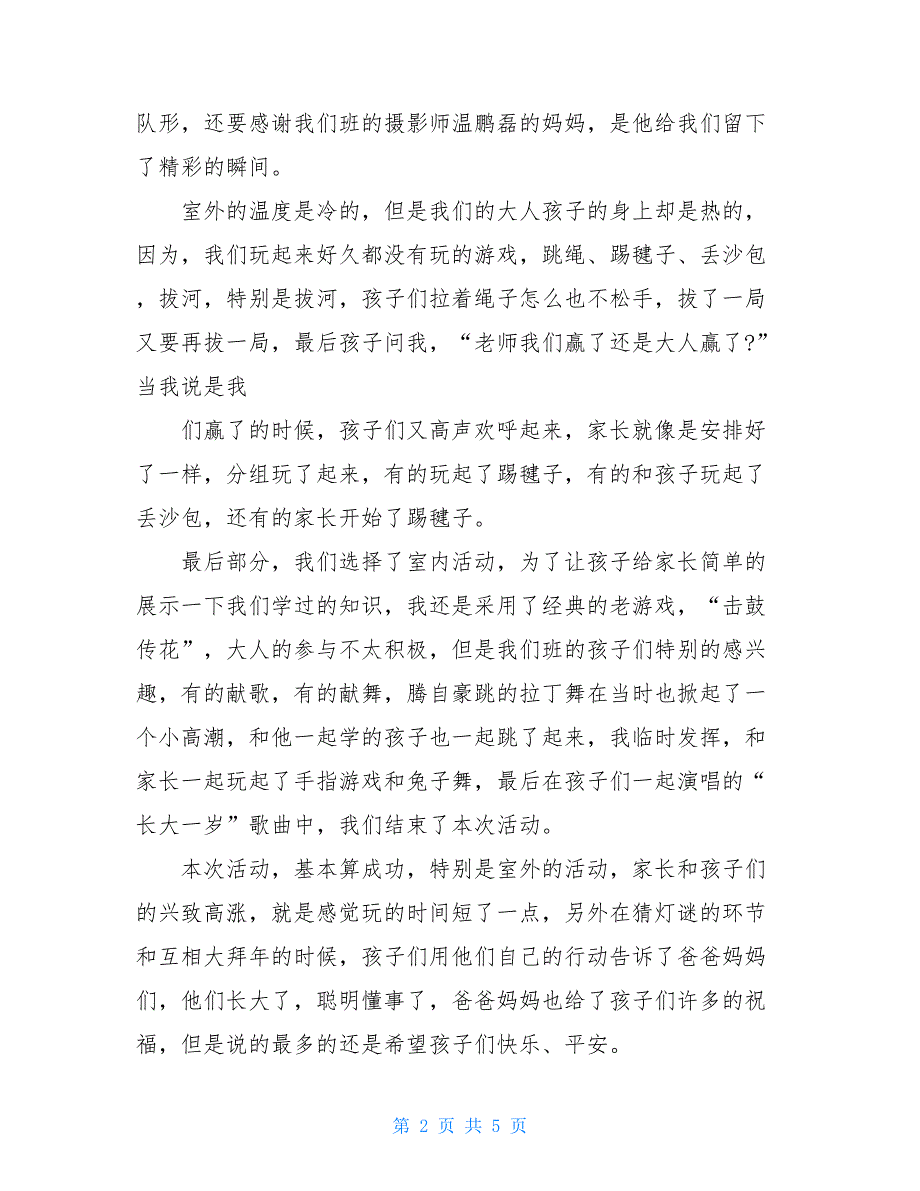 队形，还要感谢我们班的摄影师温鹏磊的妈妈，是他给我们留下
了精彩的瞬间。
室外的温度是冷的，但是我们的大人孩子的身上却是热的，
因为，我们玩起来好久都没有玩的游戏，跳绳、踢毽子、丢沙包
，拔河，特别是拔河，孩子们拉着绳子怎么也不松手，拔了一局
又要再拔一局，最后孩子问我，“老师我们赢了还是大人赢了?”
当我说是我
们赢了的时候，孩子们又高声欢呼起来，家长就像是安排好
了一样，分组玩了起来，有的玩起了踢毽子，有的和孩子玩起了
丢沙包，还有的家长开始了踢毽子。
最后部分，我们选择了室内活动，为了让孩子给家长简单的
展示一下我们学过的知识，我还是采用了经典的老游戏，“击鼓
传花”，大人的参与不太积极，但是我们班的孩子们特别的感兴
趣，有的献歌，有的献舞，腾自豪跳的拉丁舞在当时也掀起了一
个小高潮，和他一起学的孩子也一起跳了起来，我临时发挥，和
家长一起玩起了手指游戏和兔子舞，最后在孩子们一起演唱的“
长大一岁”歌曲中，我们结束了本次活动。
本次活动，基本算成功，特别是室外的活动，家长和孩子们
的兴致高涨，就是感觉玩的时间短了一点，另外在猜灯谜的环节
和互相大拜年的时候，孩子们用他们自己的行动告诉了爸爸妈妈
们，他们长大了，聪明懂事了，爸爸妈妈也给了孩子们许多的祝
福，但是说的最多的还是希望孩子们快乐、平安。
第 2 页 共 5 页